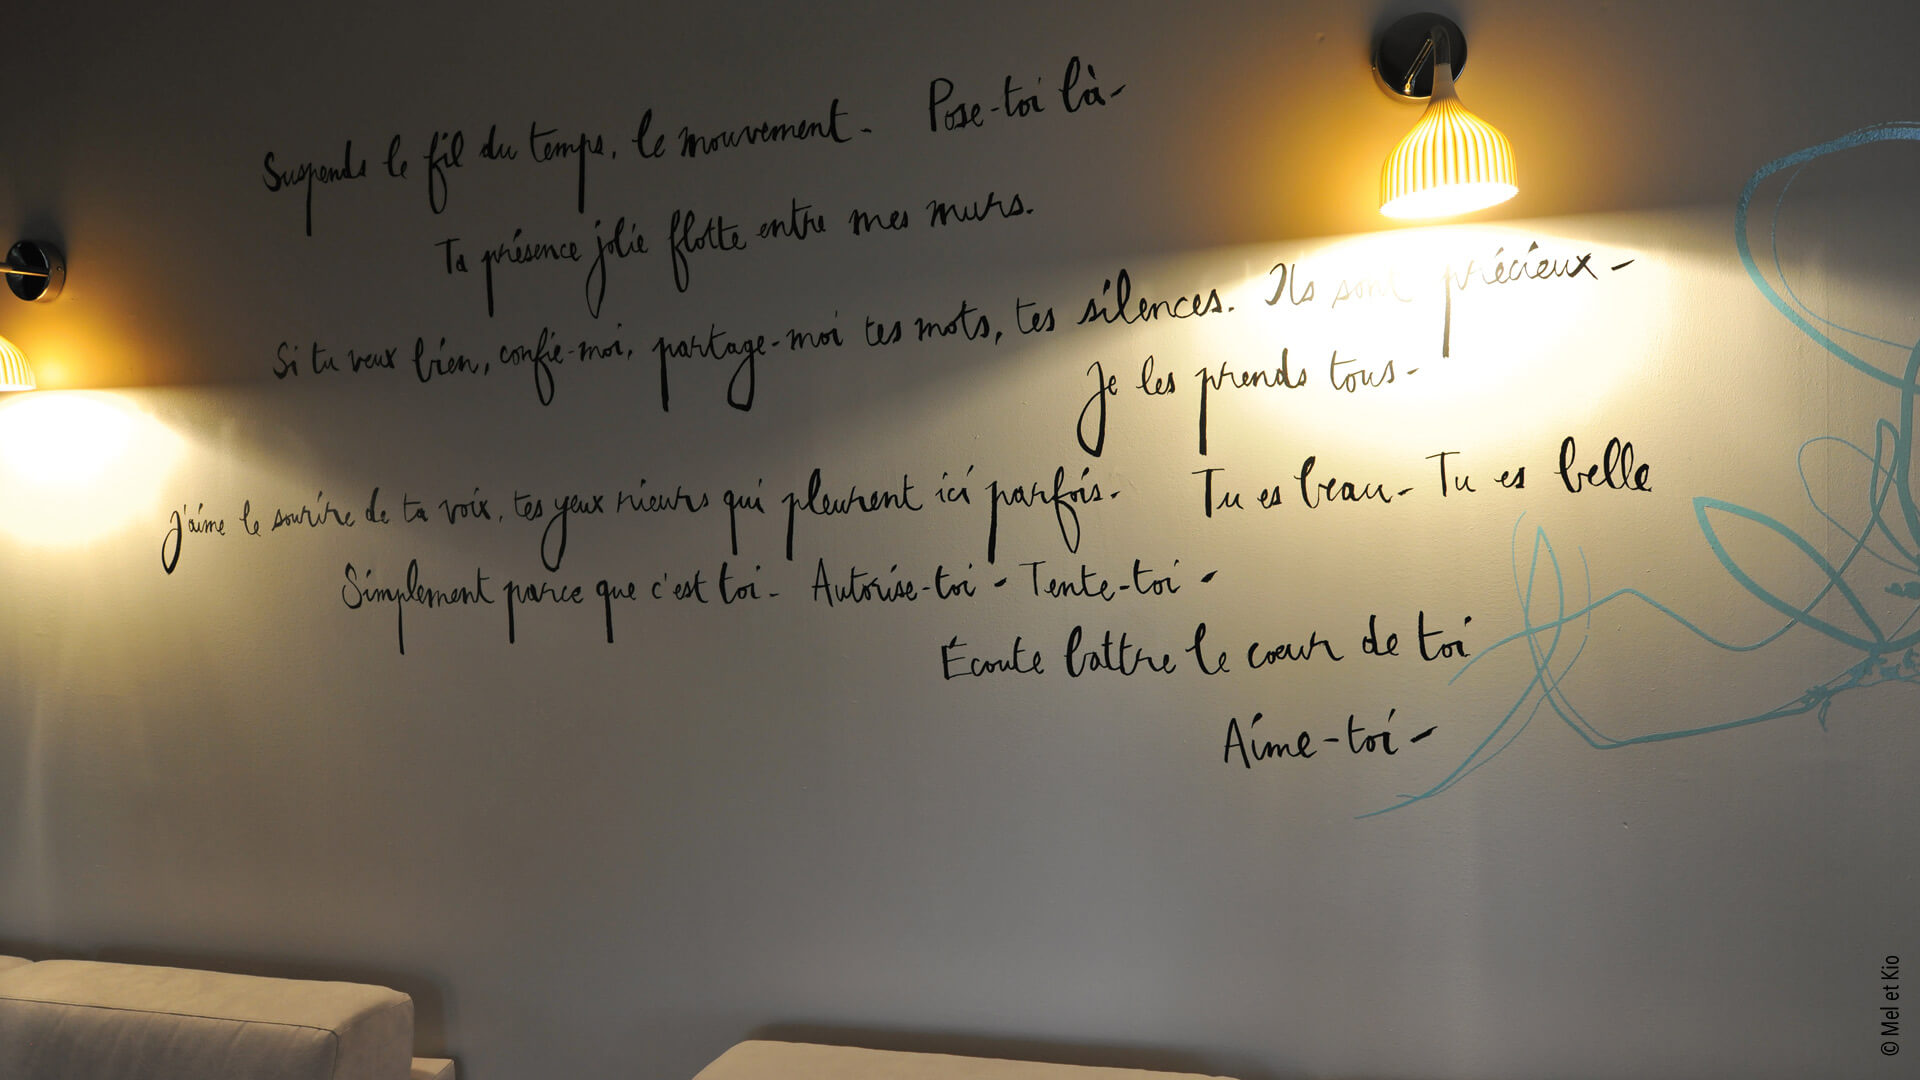 Suspends le fil du temps, le mouvement - Pose-toi là -
Ta présence jolie flotte entre mes murs.
Si tu veux bien, confie-moi, partage-moi tes mots, tes silences. Ils sont précieux -
Je les prends tous -
J'aime le sourire de ta voix, tes yeux rieurs qui pleurent ici parfois - Tu es beau - Tu es belle
Simplement parce que c'est toi - Autorise-toi - Tente-toi -
Écoute battre le cœur de toi
Aime-toi -
© Mel et Kio